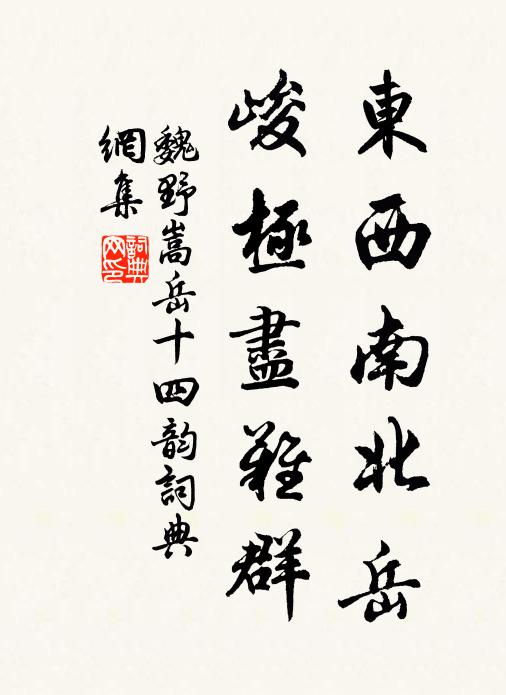 東西南北岳
峻極盡難群
魏野嵩岳十四韵詞典
網集
詞典网印